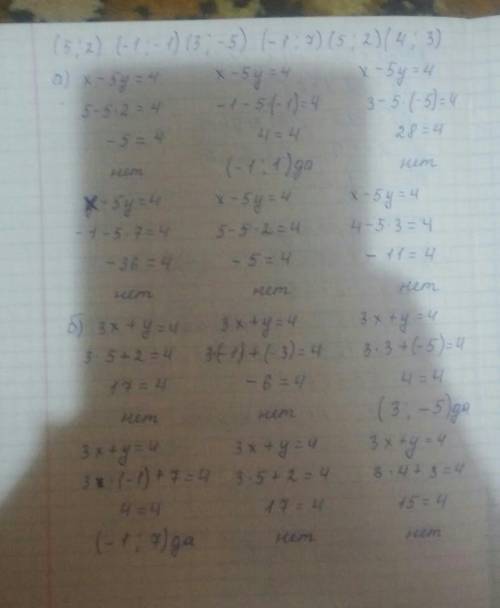 (5; 2) (-1; -1) (3; -5) (-1; 7) (5; 2) (4; 3)
а) x-5y=4 x-5y=4 x-5y=4
5-5·2=4 -1-5·(-1)=4 3-5·(-5)=4
-5=4 4=4 28=4
нет (-1; 1) да нет
x-5y=4 x-5y=4 x-5y=4
-1-5·7=4 5-5·2=4 4-5·3=4
-36=4 -5=4 -11=4
нет нет нет
б) 3x+y=4 3x+y=4 3x+y=4
3·5+2=4 3(-1)+(-3)=4 3·3+(-5)=4
17=4 -6=4 4=4
нет нет (3; -5) да
3x+y=4 3x+y=4 3x+y=4
3·(-1)+7=4 3·5+2=4 3·4+3=4
4=4 17=4 15=4
(-1; 7) да нет нет